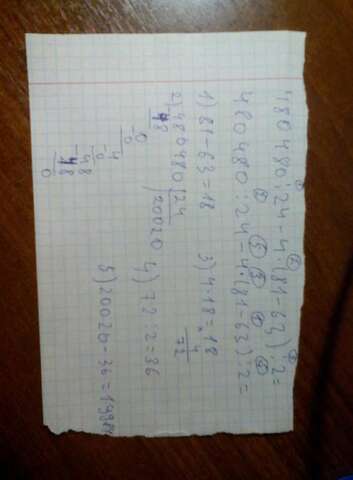 480 480 : 24 - 4 · (81 - 63) : 2 =
480 480 : 24 - 4 · (81 - 63) : 2 =
1) 81 - 63 = 18
3) 4 · 18 = 18
4
72
2) 480480 | 24
48
20020
0
0
4
0
48
48
0
4) 72 : 2 = 36
5) 20020 - 36 = 19984